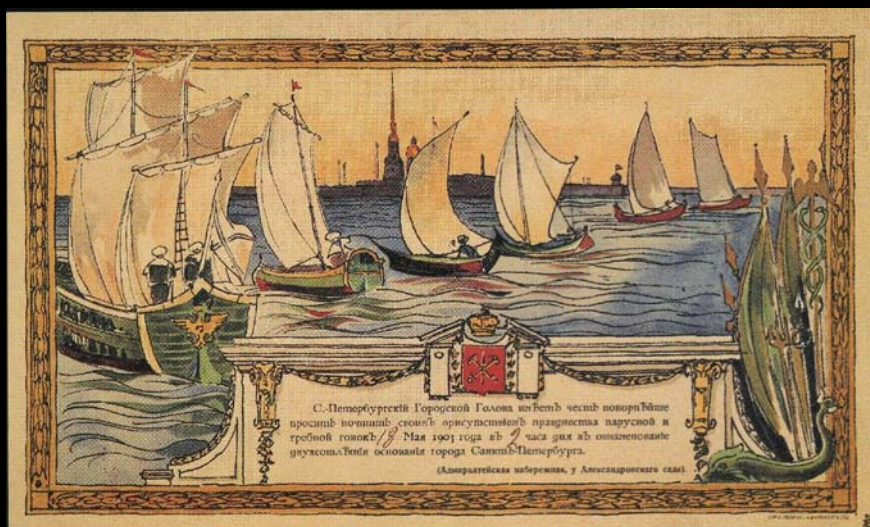 С.-Петербургскій Городской Голова имѣетъ честь покорнѣйше
проситъ почтить своимъ присутствіемъ празднества парусной и
гребной гонокъ 18 Мая 1903 года въ 2 часа дня въ ознаменованіе
двухсотлѣтія основанія города Санктъ-Петербурга.
(Адмиралтейская набережная, у Александровскаго сада).